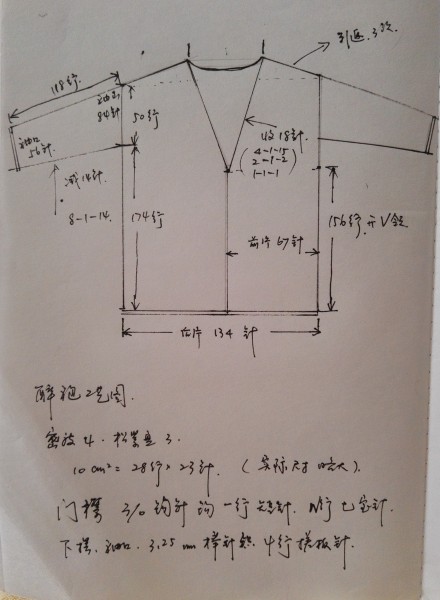 引返3次
118行
袖山
84针
50行
袖口
56针
收18针
4-1-15
2-1-2
1-1-1
减14针
8-1-14
174行
156行开V领
前片67针
后片 134 针
工艺图
3
10cm²= 28行×23针. (实际尺寸略大).
门襟 3/0 钩针钩一行短针. N行七宝针.
下摆. 袖口. 3.25mm 棒针 4行搓板针.